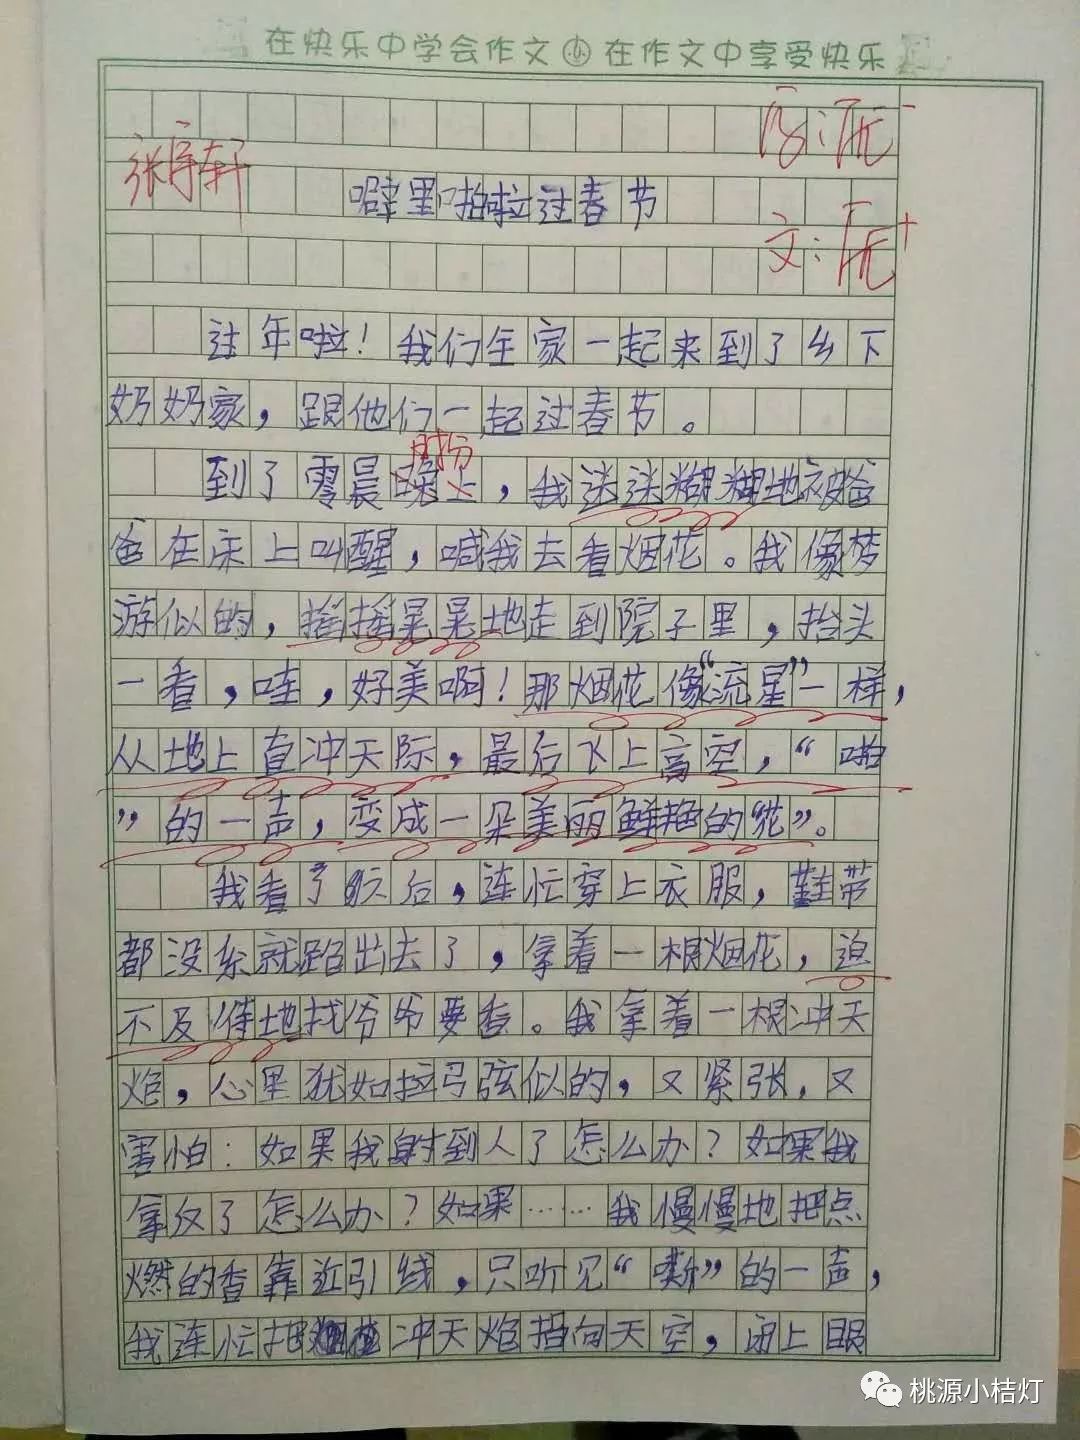 在快乐中学会作文 在作文中享受快乐
张宇轩
字:优-
噼里啪啦过春节
文:优+
过年啦！我们全家一起来到了乡下
奶奶家，跟他们一起过春节。
时分
到了零晨晚上，我迷迷糊糊地被爸
爸在床上叫醒，喊我去看烟花。我像梦
游似的，摇摇晃晃地走到院子里，抬头
一看，哇，好美啊！那烟花像“流星”一样，
从地上直冲天际，最后飞上高空，“啪
”的一声，变成一朵美丽鲜艳的“花”。
我看了以后，连忙穿上衣服，鞋带
都没系就跑出去了，拿着一根烟花，迫
不及待地找爷爷要香。我拿着一根冲天
炮，心里犹如拉弓弦似的，又紧张，又
害怕：如果我射到人了怎么办？如果我
拿反了怎么办？如果……我慢慢地把点
燃的香靠近引线，只听见“嘶”的一声，
我连忙把冲天炮指向天空，闭上眼
桃源小桔灯